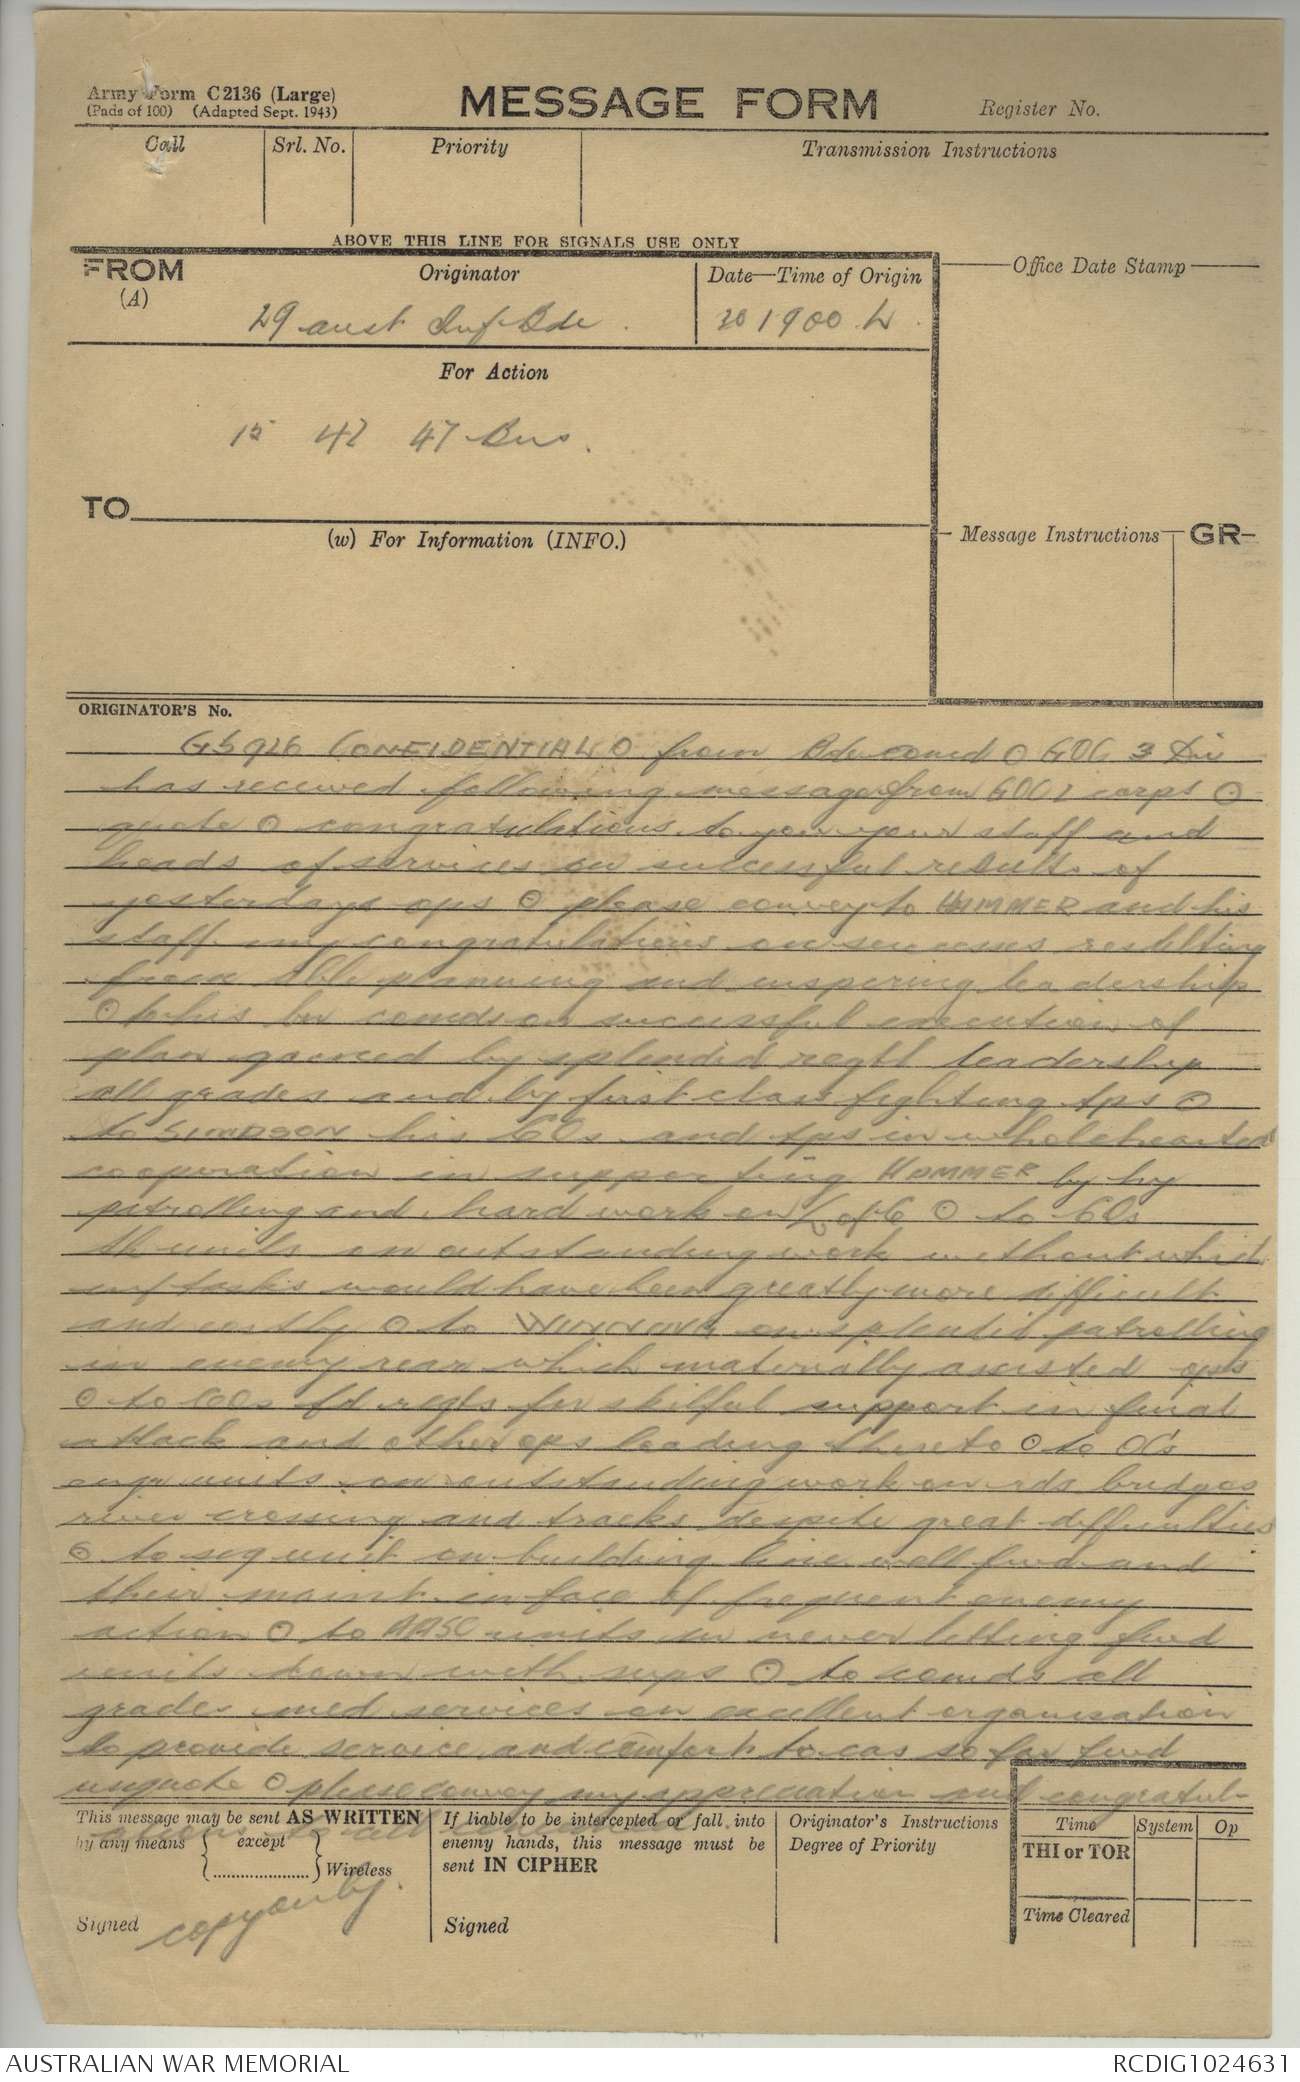 Army Form C2136 (Large)
(Pads of 100) (Adapted Sept. 1943)
MESSAGE FORM
Register No.
Call
Srl. No.
Priority
Transmission Instructions
ABOVE THIS LINE FOR SIGNALS USE ONLY
FROM
(A)
Originator
29 aust Inf Bde.
Date—Time of Origin
201900 L.
Office Date Stamp
For Action
15 42 47 Bns.
TO
(w) For Information (INFO.)
Message Instructions
GR-
ORIGINATOR'S No.
CONFIDENTIAL O from Bde comd O GOC 3 Div
has received following message from GOC 1 corps ⊙
quote ⊙ congratulations to you your staff and
heads of services on successful results of
yesterdays ops ⊙ please convey to HAMMER and his
staff my congratulations on successes resulting
from able planning and inspiring leadership
⊙ to his bn comds on successful execution of
plan gained by splendid regtl leadership
all grades and by first class fighting tps ⊙
to SIMPSON his COs and tps in wholehearted
cooperation in supporting HAMMER by hy
patrolling and hard work on L of C ⊙ to COs
units on outstanding work without which
inf tasks would have been greatly more difficult
and costly ⊙ to WINNING on splendid patrolling
in enemy rear which materially assisted ops
⊙ to COs fd regts for skilful support in final
attack and other ops leading thereto ⊙ to OC's
engr units on outstanding work on rds bridges
river crossing and tracks despite great difficulties
⊙ to sig unit on building line well fwd and
their maint in face of frequent enemy
action ⊙ to AASC units in never letting fwd
units down with sups ⊙ to comds all
grades med services on excellent organisation
to provide service and comfort to cas so far fwd
unquote ⊙ please convey my appreciation and congratul-
to all
This message may be sent AS WRITTEN
by any means { except } Wireless
Signed
copy only.
If liable to be intercepted or fall into
enemy hands, this message must be
sent IN CIPHER
Signed
Originator's Instructions
Degree of Priority
Time
System
Op
THI or TOR
Time Cleared
AUSTRALIAN WAR MEMORIAL
RCDIG1024631